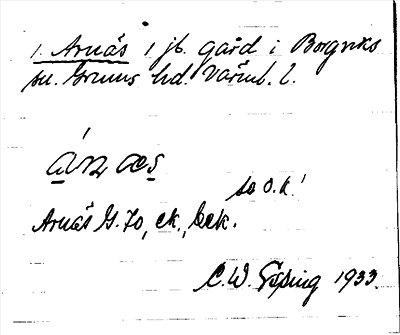 1. Arnäs 1 jb. gård i Borgviks
sn. Grums hd. Värml. l.
a´n æs
so O.K!
Arnäs G. Jo, ek., bek.
C.W. Göping 1933.